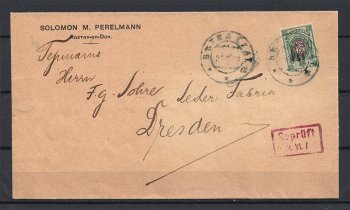 SOLOMON M. PERELMANN
Rostov-on-Don.
Германия
Herrn
F. g.
Leder Fabrik
Dresden
Geprüft